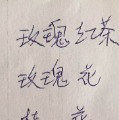 玫瑰红茶
玫瑰花
花